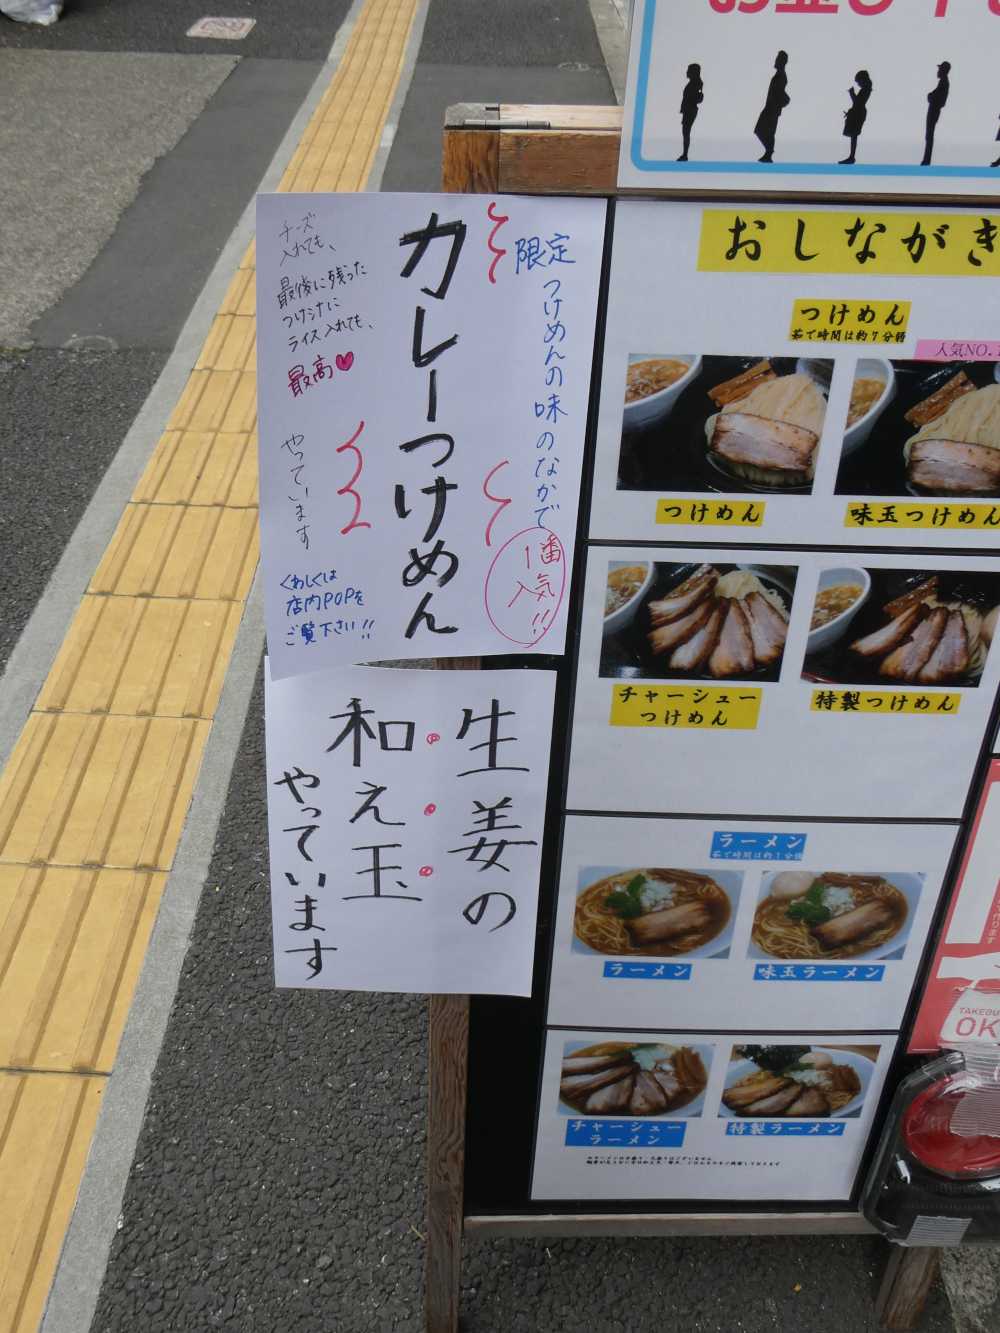 限定
つけめんの味のなかで
1番
人気!!
カレーつけめん
チーズ
入れても、
最後に残った
つけシルに
ライス入れても、
最高
やっています
くわしくは
店内POPを
ご覧下さい!!
生姜の
和え玉
やっています
おしながき
つけめん
茹で時間は約7分弱
人気NO.1
つけめん
味玉つけめん
チャーシュー
つけめん
特製つけめん
ラーメン
茹で時間は約1分強
ラーメン
味玉ラーメン
チャーシュー
ラーメン
特製ラーメン
TAKEOU
OK